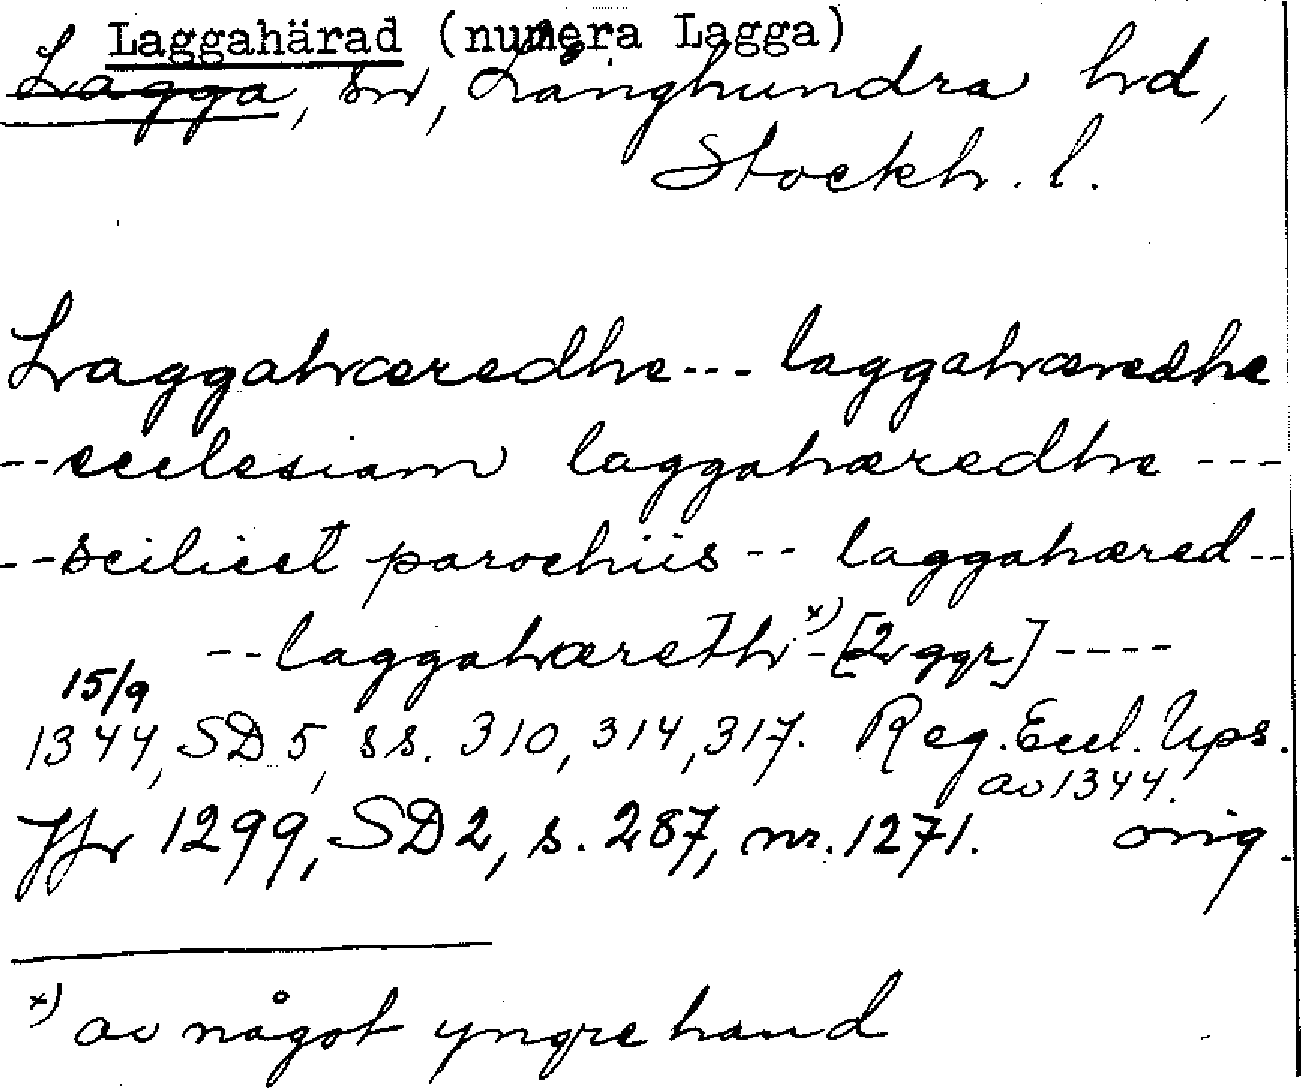 Laggahärad (numera Lagga)
Lagga, sn, Långhundra hd,
Stockh. l.
Laggahæredhe --- laggahæredhe
-- ecclesiam laggahæredhe ---
-- scilicet parochiis -- laggahæred --
-- laggahæreth x) - [2 ggr] ----
15/9
1344, SD 5, ss. 310, 314, 317. Reg. Eccl. Ups.
av 1344.
Jfr 1299, SD 2, s. 287, nr. 1271. orig.
x) av något yngre hand